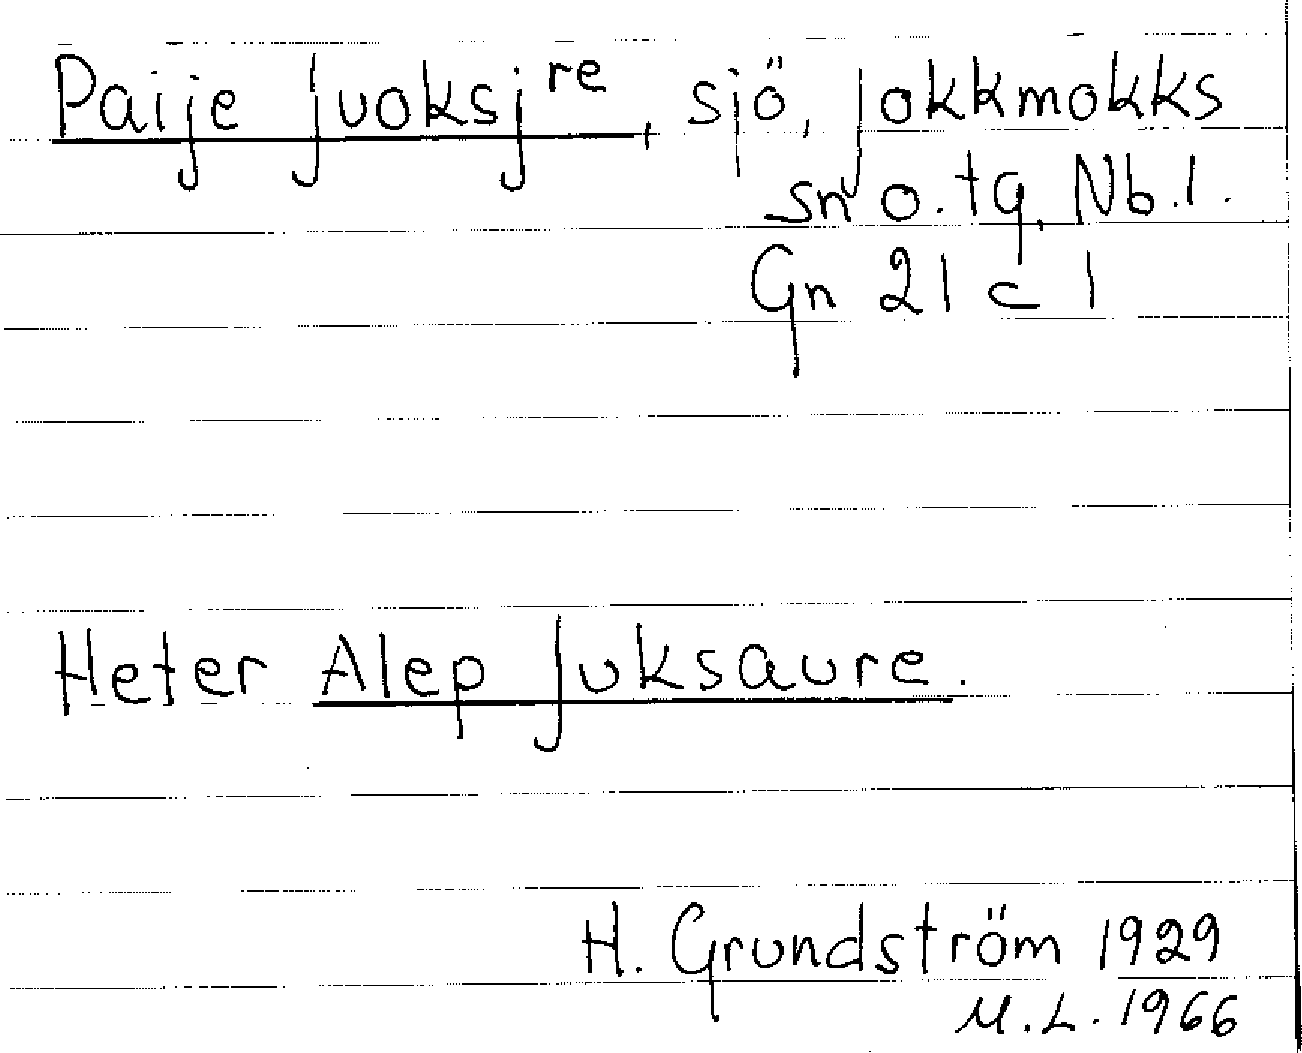 Paije Juoksjre, sjö, Jokkmokks
sn o. tg, Nb. l.
Gn 21 c 1
Heter Alep Juksaure.
H. Grundström 1929
M. L. 1966